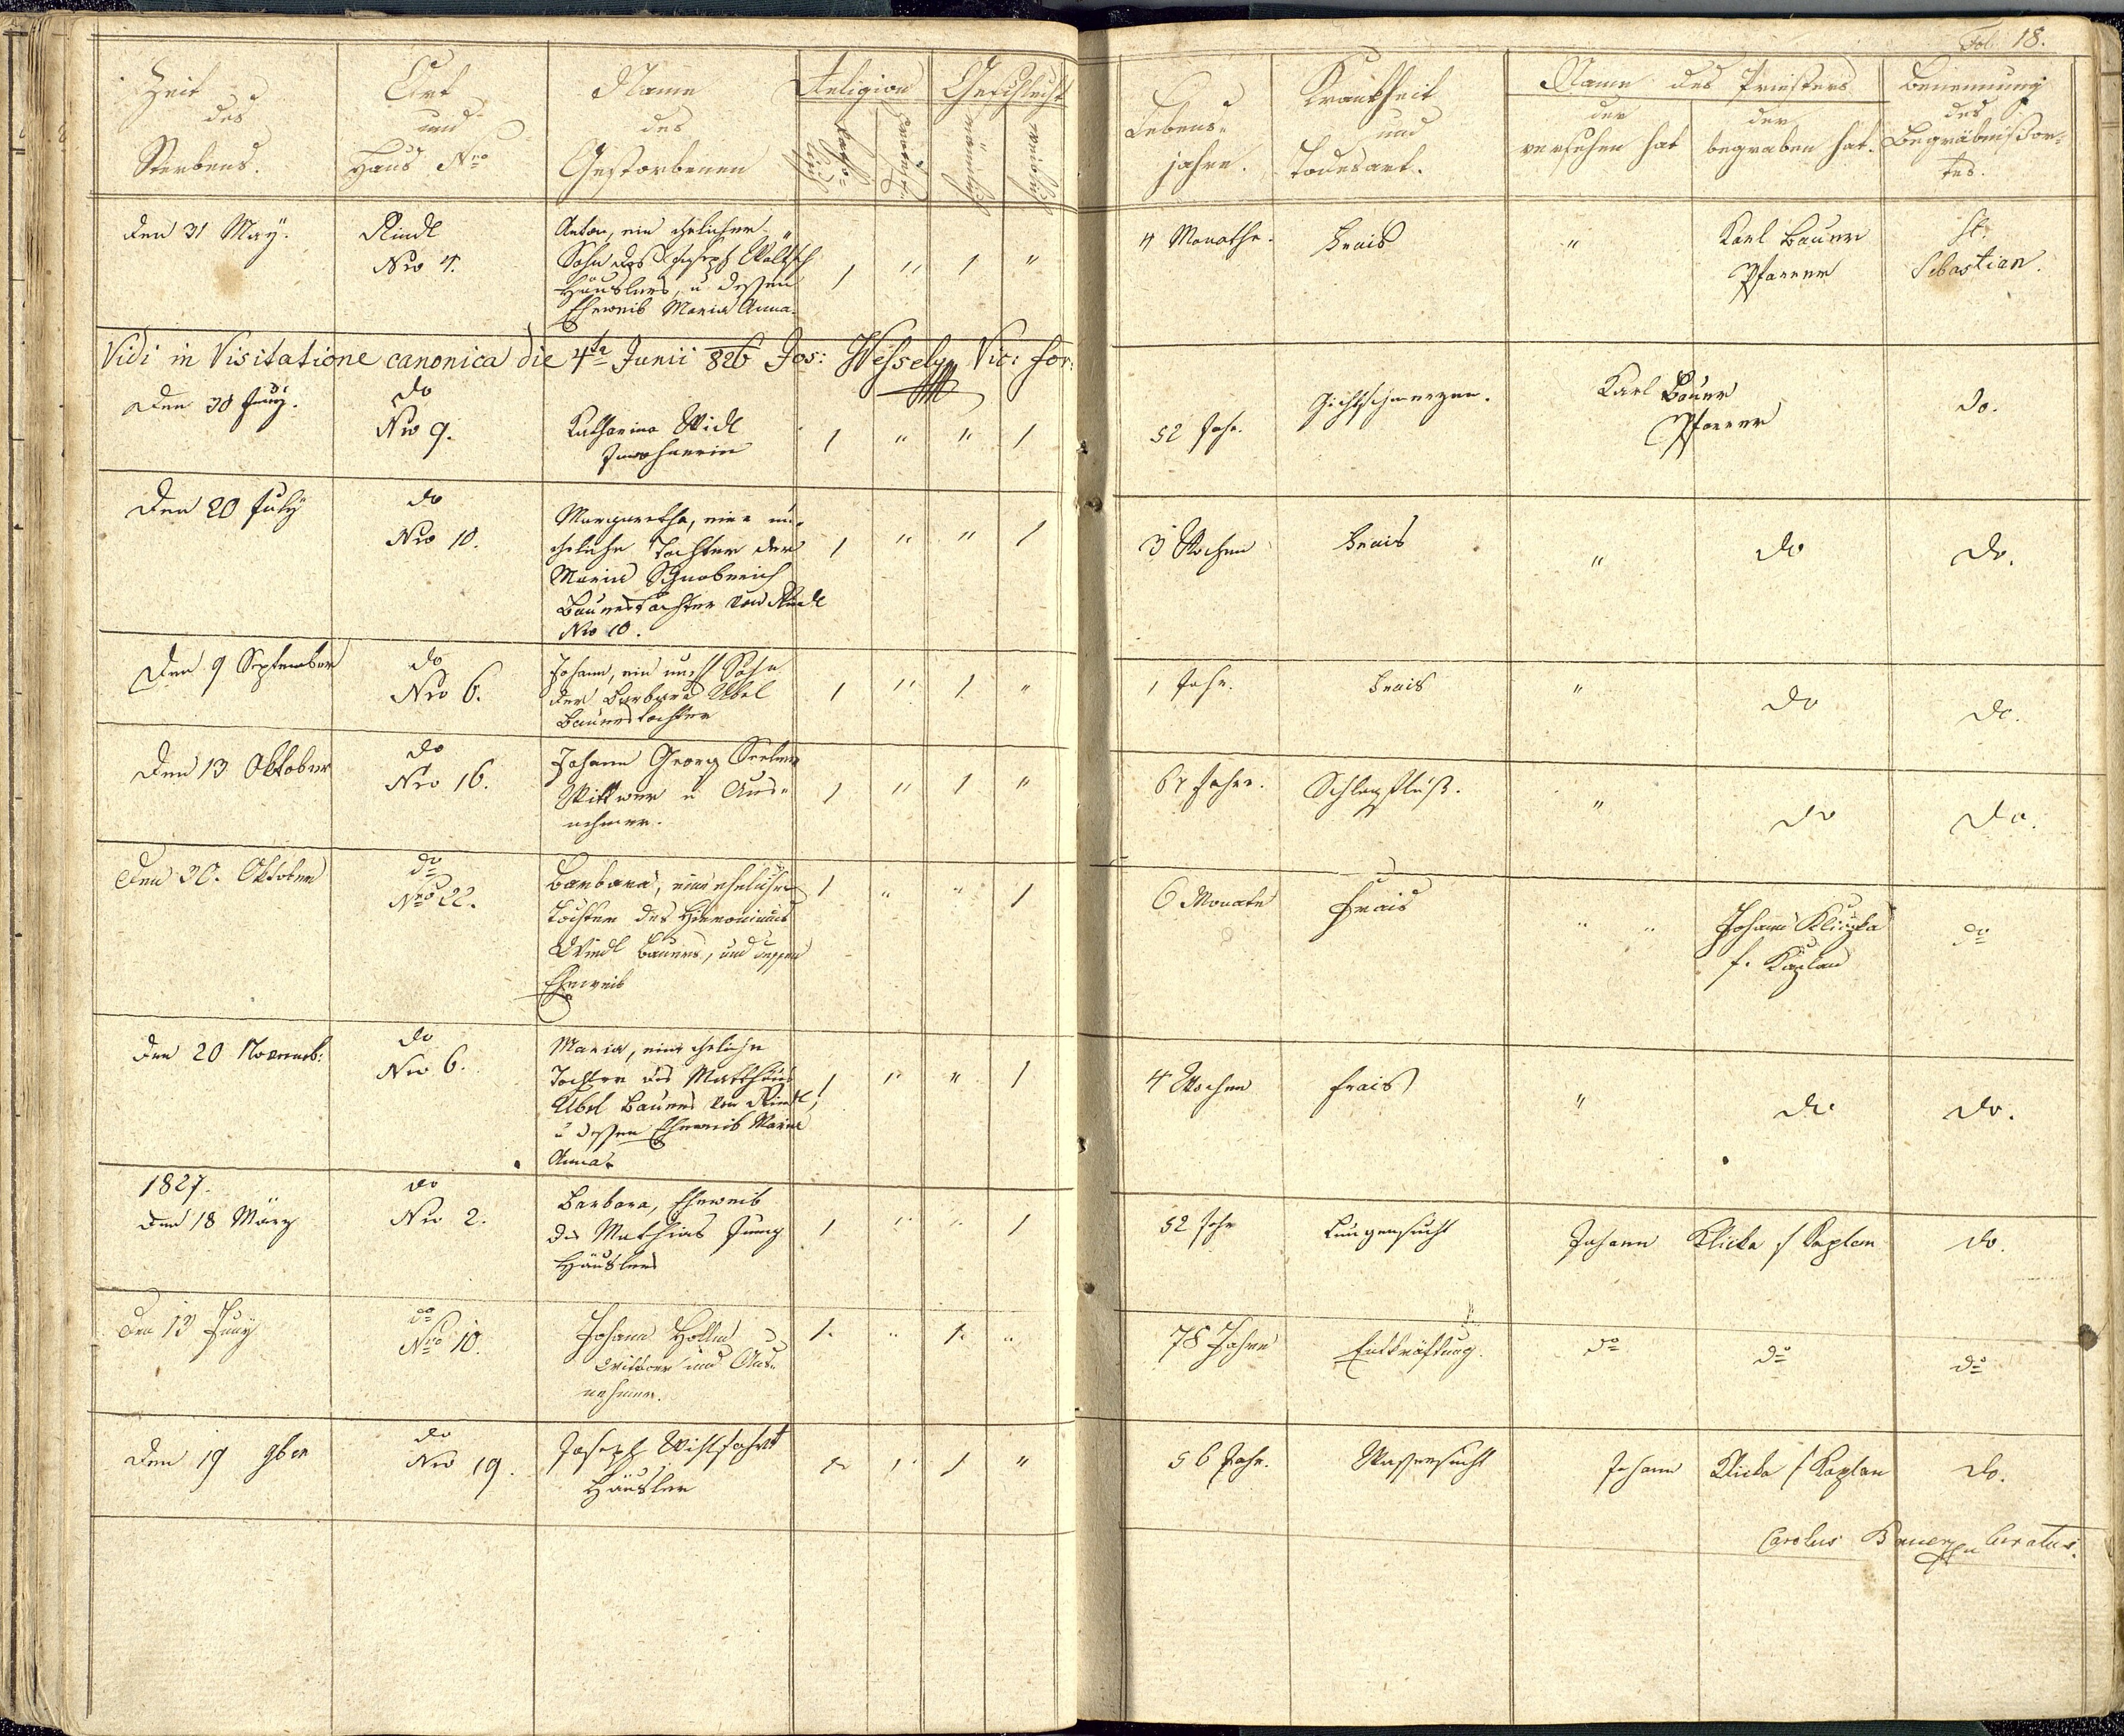 Fol. 18.
Zeit des Sterbens.
Ort und Haus Nro
Name des Gestorbenen
Religion
Katholisch
Protest.
Geschlecht
männlich
weiblich
Lebensjahre.
Krankheit und Todesart.
Name des Priesters
der versehen hat
der begraben hat.
Benennung des Begräbnißortes.
den 31 May.
Rindl
Nro 4.
Anton, ein ehelicher
Sohn des Joseph
Häuslers, u dessen
Eheweib Maria Anna.
1 " 1 "
4 Monathe.
Frais
"
Karl Bauer
Pfarrer
St.
Sebastian.
Vidi in Visitatione canonica die 4te Junii 826 Jos: Wessely Vic: for:
den 30 Juny.
do
Nro 9.
Katharina Widl
Inwohnerin
1 " " 1
52 Jahr.
Gichtschmerzen.
Karl Bauer
Pfarrer
do.
den 20 July
do
Nro 10.
Margaretha, eine un-
eheliche Tochter der
Maria
Bauerstochter von Rindl
Nro 10.
1 " " 1
3 Wochen
Frais
"
do
do.
den 9 September
do
Nro 6.
Johann, ein unehl Sohn
der Barbara Übel
Bauerstochter
1 " 1 "
1 Jahr.
Frais
"
do
do.
den 13 Oktober
do
Nro 16.
Johann Georg
Wittwer u Aus-
nehmer.
1 " 1 "
67 Jahre.
Schlagfluß.
"
do
do.
den 30. Oktober
do
Nro 22.
Barbara, eine eheliche
Tochter des Hieronimus
Widl Bauers, und dessen
Eheweib
1 " " 1
6 Monate
Frais
" "
Johann Kliczka
f. Kaplan
do
den 20 Novemb:
do
Nro 6.
Maria, eine eheliche
Tochter des Matthäus
Übel Bauers von Rindl,
u dessen Eheweib Maria
Anna.
1 " " 1
4 Wochen
Frais
"
do
do.
1827.
den 18 März
do
Nro 2.
Barbara, Eheweib
des Mathias Jung
Häuslers
1 " " 1
52 Jahr
Lungensucht
Johann Klicka f Kaplan
do.
den 13 Juny
do
Nro 10.
Johann
Wittwer und Aus-
nehmer.
1. " 1. "
78 Jahre
Entkräftung.
do
do
do
den 19 9ber
do
Nro 19.
Joseph
Häusler
1 " 1 "
56 Jahr.
Wassersucht
Johann Klicka f Kaplan
do.
Carolus Bauer Curatus.